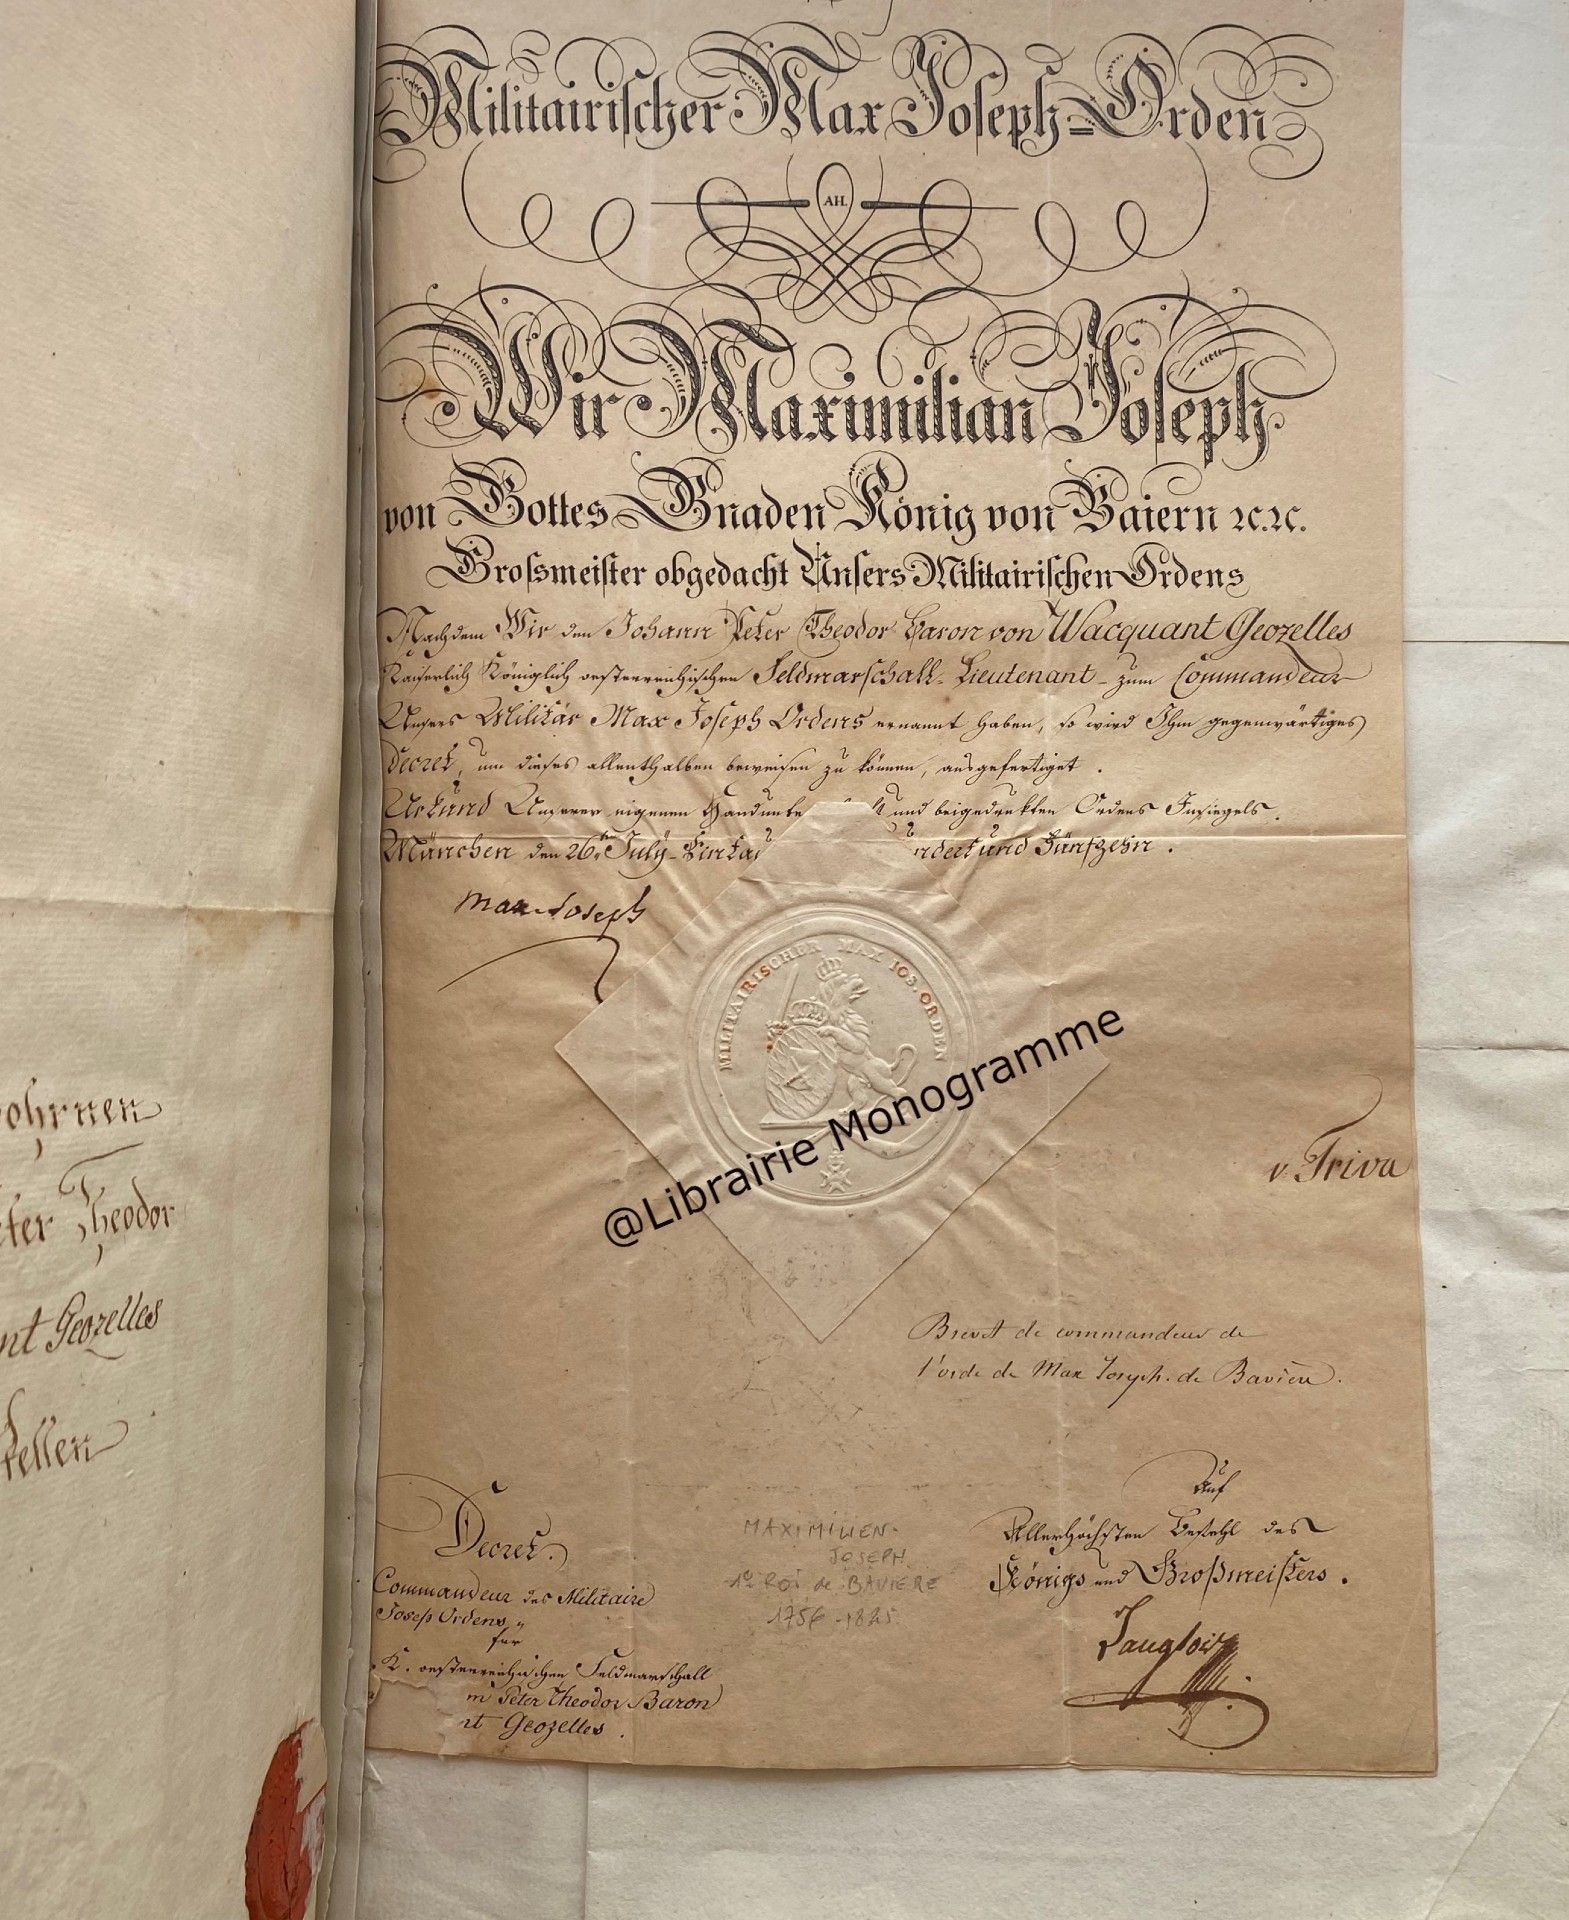 Militairischer Max Joseph=Orden
AH.
Wir Maximilian Joseph
von Gottes Gnaden König von Baiern ꝛc. ꝛc.
Grossmeister obgedacht Unsers Militairischen Ordens
Nachdem Wir den Johann Peter Theodor Baron von Wacquant Geozelles
Kaiserlich Königlich oesterreichischen Feldmarschall-Lieutenant - zum Commandeur
Unsers Militär Max Joseph Ordens ernannt haben, so wird Ihm gegenwärtiges
Decret, um dieses allenthalben beweisen zu können, ausgefertiget.
Urkund Unserer eigenen Handunte und beigedrukten Ordens Insiegels.
München den 26ten July - Eintau ndert und Fünfzehn.
Max Joseph
MILITAIRISCHER MAX IOS. ORDEN
v Triva
@Librairie Monogramme
Brevet de commandeur de
l'orde de Max Joseph. de Bavière.
Auf
Allerhöchsten Befehl des
Königs und Großmeisters.
MAXIMILIEN-
JOSEPH
1er ROI de BAVIERE
1756-1825
Decret.
Commandeur des Militaire
Joseph Ordens
für
K. oesterreichischen Feldmarschall
n Peter Theodor Baron
nt Geozelles.
ter Theodor
nt Geozelles